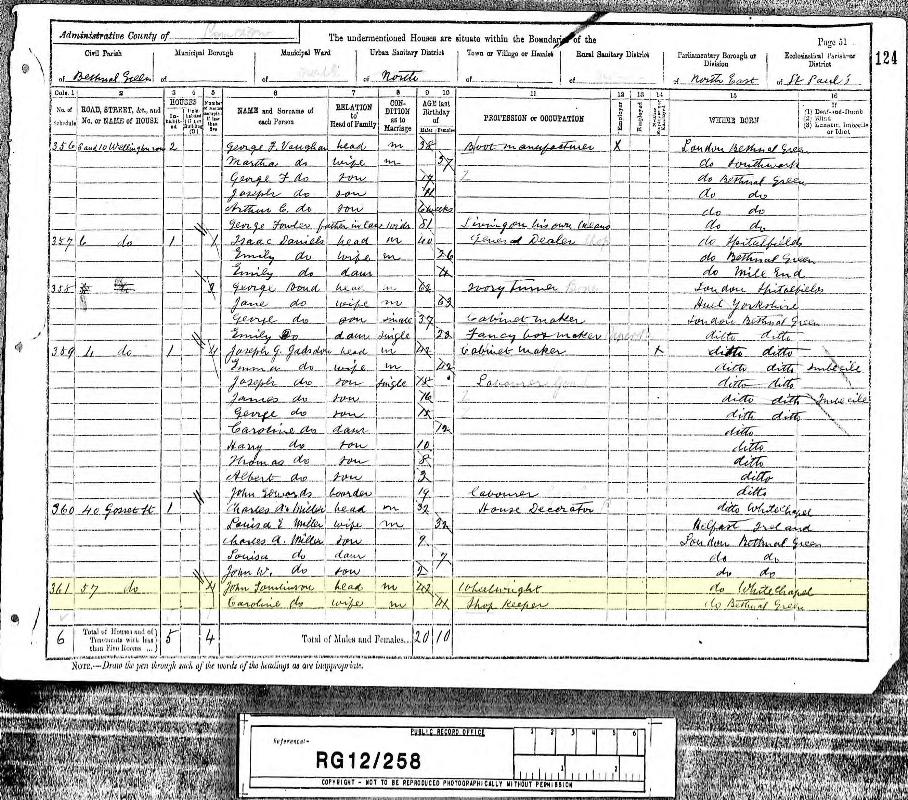 Administrative County of
The undermentioned Houses are situate within the Boundaries of the
Page 51
124
Civil Parish
Municipal Borough
Municipal Ward
Urban Sanitary District
Town or Village or Hamlet
Rural Sanitary District
Parliamentary Borough or Division
Ecclesiastical Parish or District
of Bethnal Green of of of North of of of North East of St Paul's
Cols. 1 2 3 4 5 6 7 8 9 10 11 12 13 14 15 16
No. of Schedule
ROAD, STREET, &c., and No. or NAME of HOUSE
HOUSES
NAME and Surname of each Person
RELATION to Head of Family
CONDITION as to Marriage
AGE last Birthday of
Males Females
PROFESSION or OCCUPATION
Employer
Employed
WHERE BORN
If
(1) Deaf-and-Dumb
(2) Blind
(3) Lunatic, Imbecile or Idiot
356 8 and 10 Wellington row 2 George F. Vaughan head m 38 Boot manufacturer X London Bethnal Green
Martha do wife m 37 do Southwark
George F do son 14 do Bethnal Green
Joseph do son 11 do do
Arthur C. do son 6 weeks do do
George Fowler father in law widr 81 Living on his own means do do
357 6 do 1 Isaac Daniels head m 40 General Dealer do Spitalfields
Emily do wife m 26 do Bethnal Green
Emily do daur 4 do Mile End
358 George Bond head m 62 Ivory Turner London Spitalfields
Jane do wife m 63 Hull Yorkshire
George do son single 37 Cabinet maker London Bethnal Green
Emily Do daur single 28 Fancy box maker ditto ditto
359 4 do 1 4 Joseph G. Gadsdon head m 42 Cabinet maker X ditto ditto
Emma do wife m 42 ditto ditto Imbecile
Joseph do son single 18 Labourer ditto ditto
James do son 16 ditto ditto Imbecile
George do son ditto ditto
Caroline do daur 12 ditto
Harry do son 10 ditto
Thomas do son 8 ditto
Albert do son 2 ditto
John Edwards boarder 19 Labourer ditto
360 40 Gosset St 1 Charles A. Miller head m 32 House Decorator ditto Whitechapel
Louisa E Miller wife m 32 Belfast Ireland
Charles A. Miller son 9 London Bethnal Green
Louisa do daur 7 do do
John W. do son 2 do do
361 57 do 4 John Tomlinson head m 42 Wheelwright do Whitechapel
Caroline do wife m 41 Shop Keeper do Bethnal Green
6 Total of Houses and of Tenements with less than Five Rooms 5 4 Total of Males and Females... 20 10
NOTE.—Draw the pen through such of the words of the headings as are inappropriate.
PUBLIC RECORD OFFICE
Reference:-
1 2 3 4 5 6
RG12/258
1 2
COPYRIGHT - NOT TO BE REPRODUCED PHOTOGRAPHICALLY WITHOUT PERMISSION